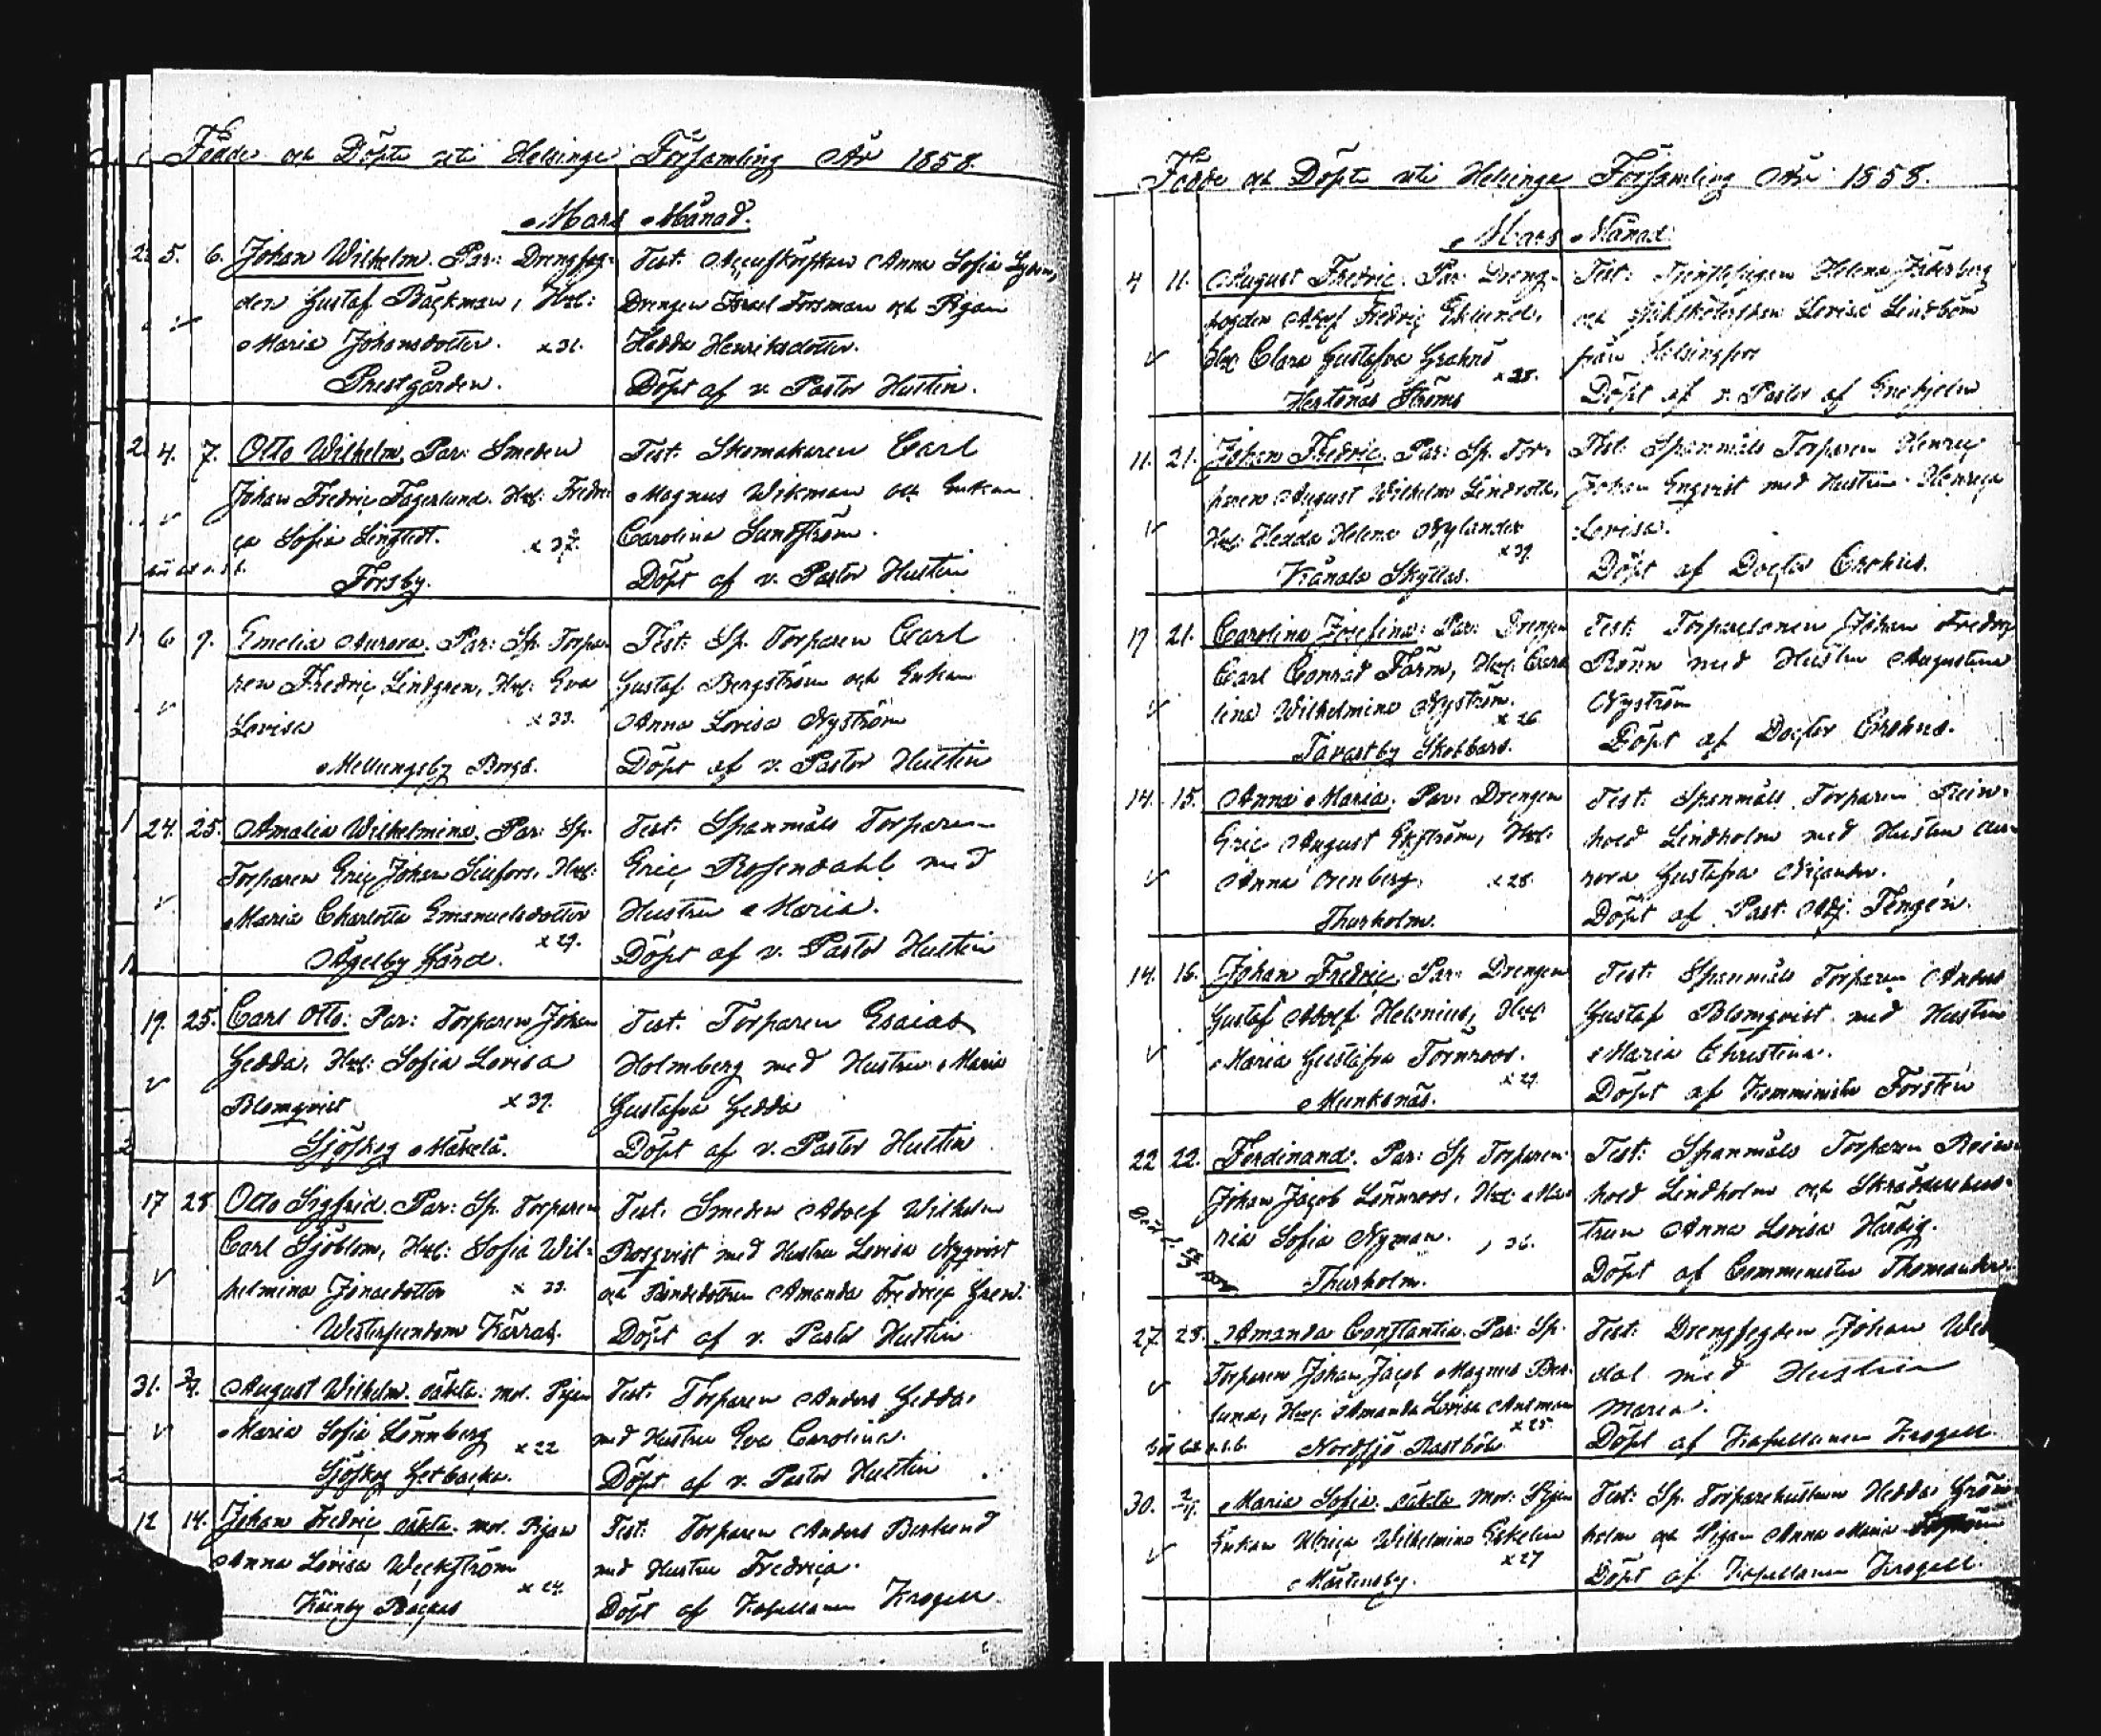 Födde och Döpte uti Helsinge Församling År 1858.
Mars Månad.
5. 6. Johan Wilhelm. Par: Drengfog-
den Gustaf Bäckman, Hust:
Maria Johansdotter. x 31.
Prestgården.
Test: Anna Sofia
Drengen Israel Forsman och Pigan
Hedda Henriksdotter.
Döpt af v. Pastor Hustin.
4. 7. Otto Wilhelm. Par: Smeden
Johan Fredric Fagerlund. Hust: Fredri-
ca Sofia
Forsby.
Test: Skomakaren Carl
Magnus Wikman och Enkan
Carolina Sundström.
Döpt af v. Pastor Hustin
6 7. Emelia Aurora. Par: Sp. Torpa-
ren Fredric Lindgren, Hust: Eva
Lovisa x 33.
Mellungsby Borgs.
Test: Sp. Torparen Carl
Gustaf Bergström och Enkan
Anna Lovisa Nyström
Döpt af v. Pastor Hustin
24. 25. Amalia Wilhelmina. Par: Sp.
Torparen Eric Johan Hust:
Maria Charlotta Emanuelsdotter
Ågelby Gård. x 29.
Test: Spanmåls Torparen
Eric Rosendahl med
Hustru Maria.
Döpt af v. Pastor Hustin
19. 25. Carl Otto: Par: Torparen Johan
Gedda, Hust: Sofia Lovisa
Blomqvist x 37.
Sjöskog Mäkelä.
Test: Torparen Esaias
Holmberg med Hustru Maria
Gustafva Gedda
Döpt af v. Pastor Hustin
17 28. Otto Sigfrid. Par: Sp. Torparen
Carl Sjöblom, Hust: Sofia Wil-
helmina Jonasdotter x 33.
Westersundom Kärras.
Test: Smeden Adolf Wilhelm
Rosqvist med Hustru Lovisa Nyqvist
och Bondedottren Amanda Fredrica
Döpt af v. Pastor Hustin
31. August Wilhelm. oäkta: mor. Pigan
Maria Sofia Lönnberg x 22
Sjöskog Getbacka.
Test: Torparen Anders Gedda
med Hustru Eva Carolina.
Döpt af v. Pastor Hustin
12 14. Johan Fredric oäkta. mor. Pigan
Anna Lovisa Weckström
Backas
Test: Torparen Anders Berlund
med Hustru Fredrica.
Döpt af Kapellanen Krogell
Födde och Döpte uti Helsinge Församling År 1858.
Mars Månad.
4 11. August Fredric. Par: Dreng-
fogden Adolf Fredric Eklund,
Hust: Clara Gustafva
Hertonäs Ströms x 28.
Test: Helena
och Lovisa Lindbom
från Helsingfors
Döpt af v. Pastor af Enehjelm
11. 21. Johan Fredric. Par: Sp. Tor-
paren August Wilhelm Lindroth,
Hust: Hedda Helena Nylander
x 39
Kånala Skyllas.
Test: Spanmåls Torparen Henric
Johan Engvist med Hustru Henrica
Lovisa.
Döpt af Doctor Crohns.
17 21. Carolina Josefina: Par: Drengen
Carl Conrad Färm, Hust: Caro-
lina Wilhelmina Nyström.
x 26
Tavastby Skobbars.
Test: Johan Fredric
Rönn med Hustru Augustina
Nyström
Döpt af Doctor Crohns.
14. 15. Anna Maria. Par: Drengen
Eric August Ekström, Hust:
Anna x 28.
Thurholm.
Test: Spanmåls Torparen Rein-
hold Lindholm med Hustru Au-
rora Gustafva
Döpt af Past. Adj. Tengén.
14. 16. Johan Fredric. Par: Drengen
Gustaf Adolf Helenius, Hust:
Maria Gustafva Törnroos.
x 29.
Munksnäs.
Test: Spanmåls Torparen Anders
Gustaf Blomqvist med Hustru
Maria Christina.
Döpt af Komminister Forstén
22 22. Ferdinand. Par: Sp Torparen
Johan Jacob Lönnroos, Hust: Ma-
ria Sofia Nyman. 36.
Thurholm.
Test: Spanmåls Torparen Rein-
hold Lindholm och Skräddarehus-
trun Anna Lovisa
Döpt af Comminister Thomander.
27. 28. Amanda Constantia. Par: Sp.
Torparen Johan Jacob Magnus
lund, Hust: Amanda Lovisa
x 25
Nordsjö Rastböle
Test: Drengfogden Johan
med Hustru
Maria.
Döpt af Kapellanen Krogell
30. Maria Sofia. oäkta Mor:
Enkan Ulrica Wilhelmina
x 27
Mårtensby.
Test: Sp. Torparehustrun Hedda Grön-
holm och Pigan Anna Maria
Döpt af Kapellanen Krogell.